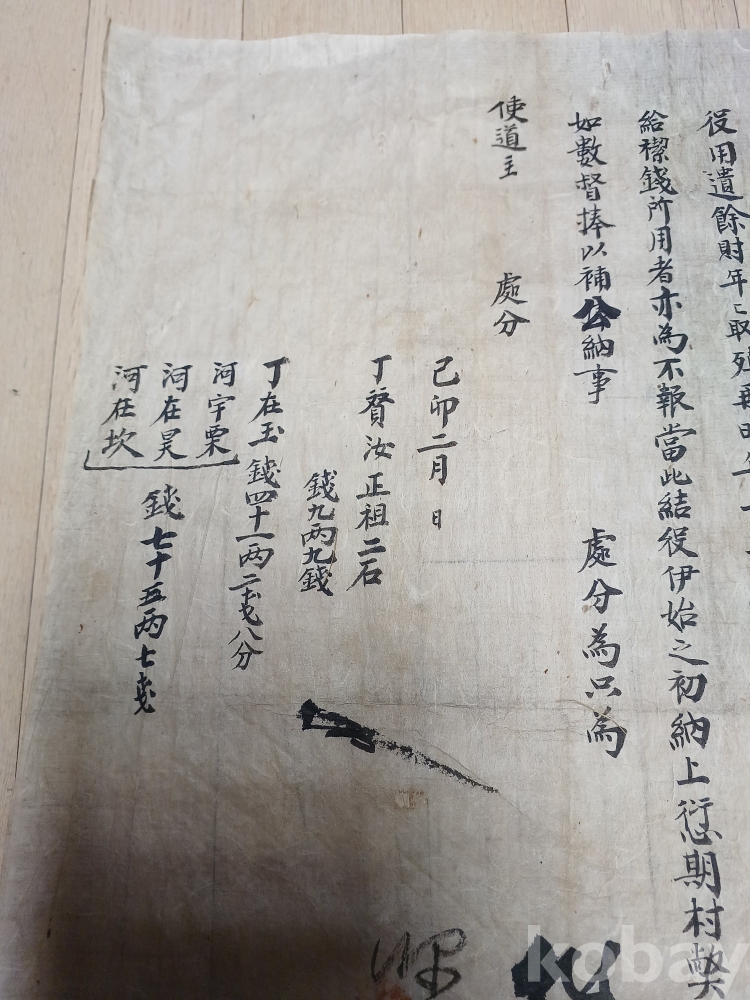 役用遺餘財年〻取殖
給禊錢所用者亦為不報當此結役伊始之初納上愆期村弊
如數督捧以補公納事 處分為只為
使道主 處分
己卯二月 日
丁賚汝正祖二石
錢九兩九錢
丁在玉錢四十一兩二戔八分
河宇栗
河在昊
河在坎
錢七十五兩七戔
kobay